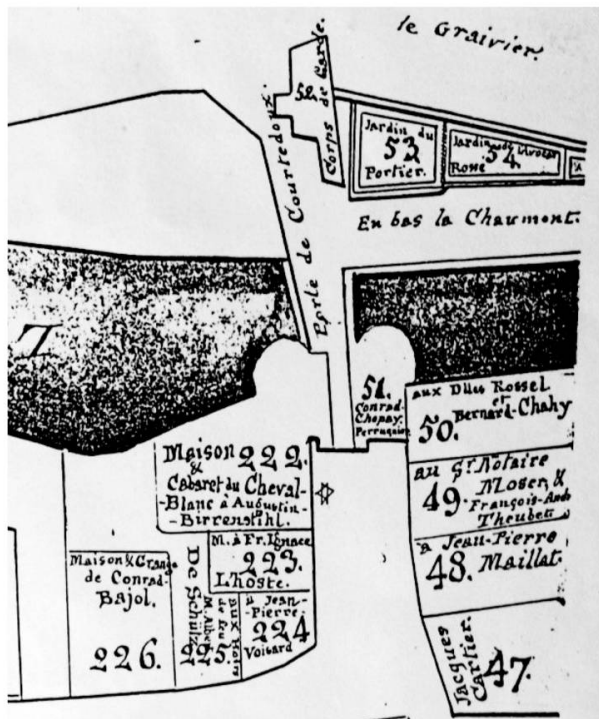 le Grairier.
52.
Corps de Garde.
Porte de Courtedoux.
Jardin du
53
Portier.
Jardin de l'Avocat
54.
Rosse
En bas la Chaumont.
7
51.
Conrad-
Chopay.
Perruquier
aux Dlles Rossel
et
Bernard-Chahy
50.
au Sr. Notaire
Moser, &
49.
François-
Theubet
à Jean-Pierre
Maillat.
48.
Jacques
Cartier.
47.
Maison 222.
&
Cabaret du Cheval-
-Blanc à Augustin-
-Birrenstihl.
M. à Fr. Ignace
223.
L'hoste.
à Jean-
Pierre
224
Voisard
aux Hoirs
de feu
M. Albert
De Schütz
225.
Maison & Grange
de Conrad-
Bajol.
226.